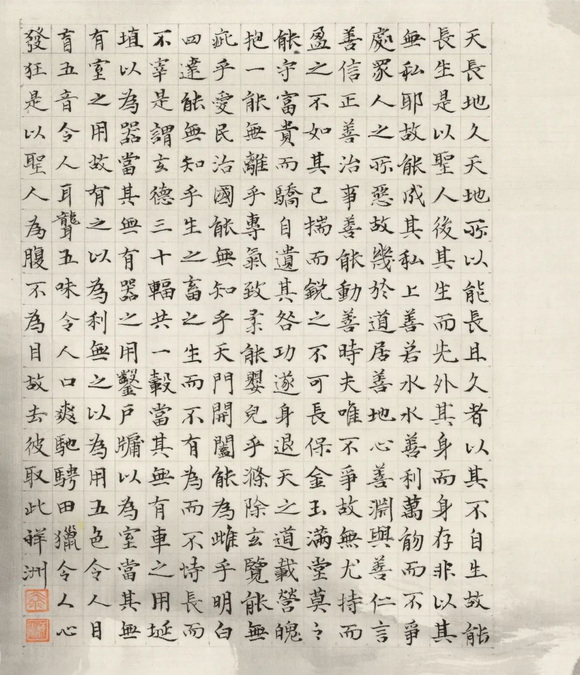 天長地久天地所以能長且久者以其不自生故能
長生是以聖人後其生而先外其身而身存非以其
無私耶故能成其私上善若水水善利萬物而不爭
處眾人之所惡故幾於道居善地心善淵與善仁言
善信正善治事善能動善時夫唯不爭故無尤持而
盈之不如其已揣而銳之不可長保金玉滿堂莫之
能守富貴而驕自遺其咎功遂身退天之道載營魄
抱一能無離乎專氣致柔能嬰兒乎滌除玄覽能無
疵乎愛民治國能無知乎天門開闔能為雌乎明白
四達能無知乎生之畜之生而不有為而不恃長而
不宰是謂玄德三十輻共一轂當其無有車之用埏
埴以為器當其無有器之用鑿戶牖以為室當其無
有室之用故有之以為利無之以為用五色令人目
盲五音令人耳聾五味令人口爽馳騁田獵令人心
發狂是以聖人為腹不為目故去彼取此祥洲